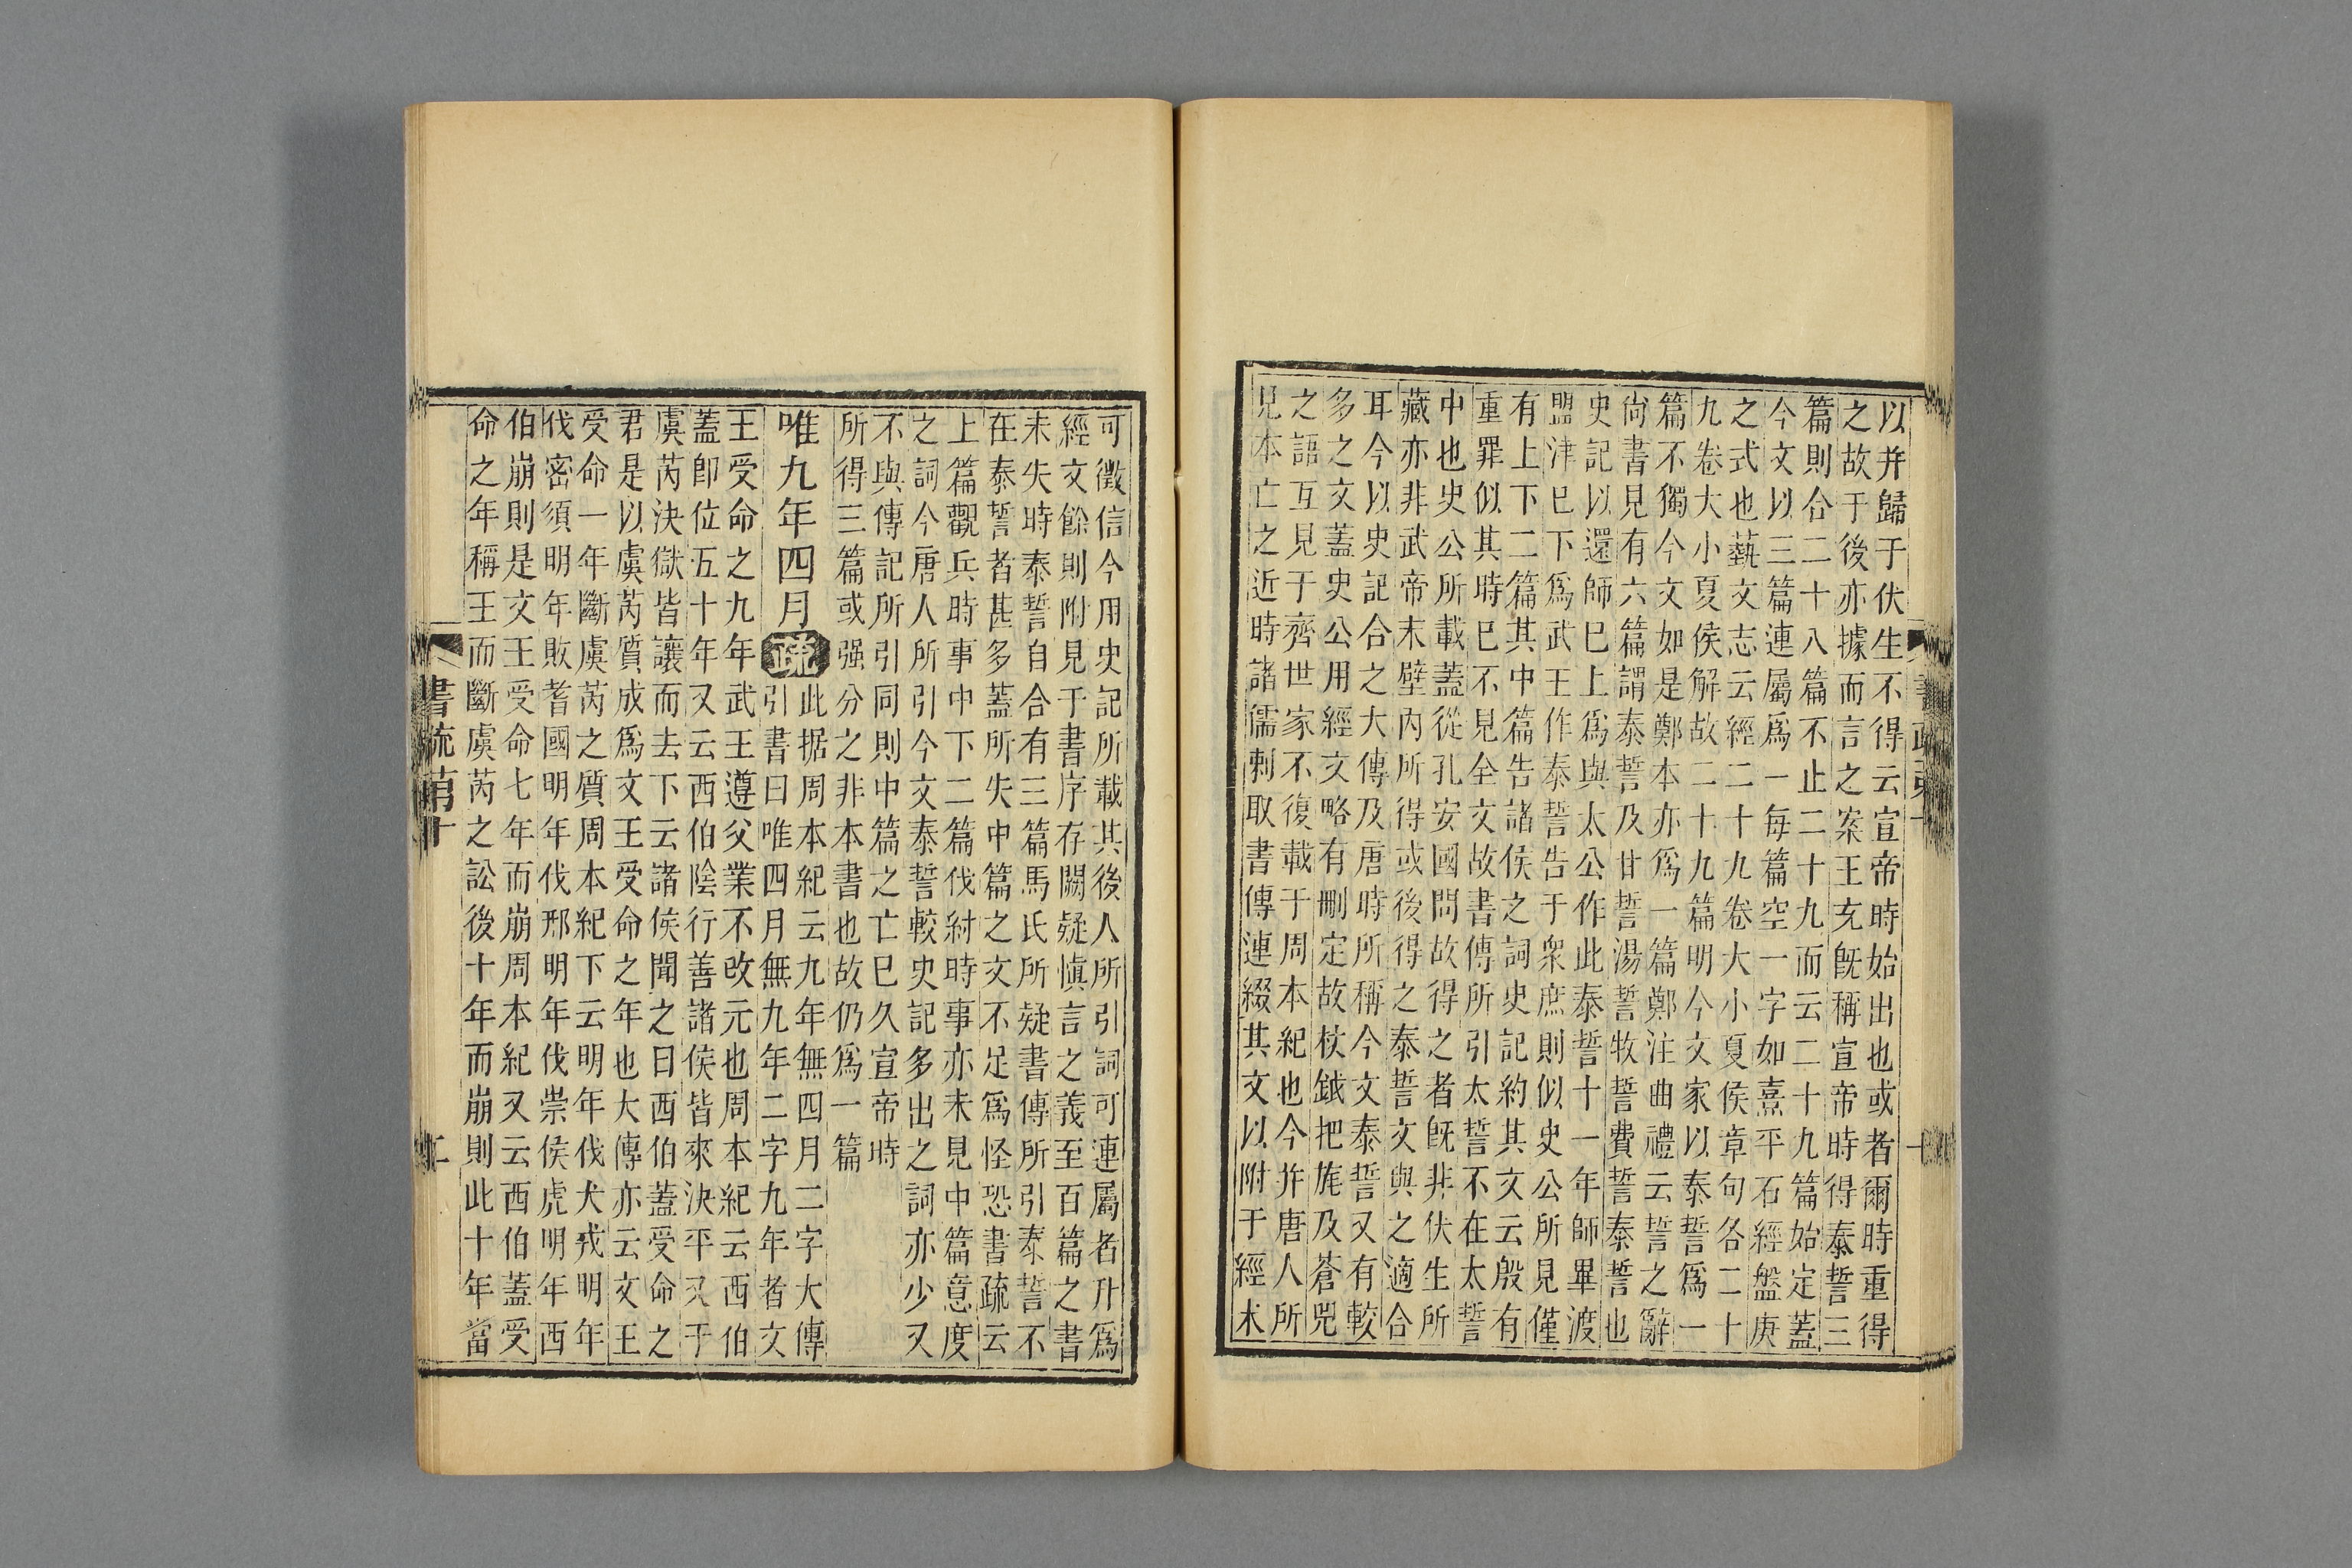 以并歸于伏生不得云宣帝時始出也或者爾時重得
之故于後亦據而言之案王充旣稱宣帝時得泰誓三
篇則合二十八篇不止二十九而云二十九篇始定蓋
今文以三篇連屬爲一每篇空一字如熹平石經盤庚
之式也藝文志云經二十九卷大小夏侯章句各二十
九卷大小夏侯解故二十九篇明今文家以泰誓爲一
篇不獨今文如是鄭本亦爲一篇鄭注曲禮云誓之辭
尙書見有六篇謂泰誓及甘誓湯誓牧誓費誓泰誓也
史記以還師巳上爲與太公作此泰誓十一年師畢渡
盟津巳下爲武王作泰誓告于衆庶則似史公所見僅
有上下二篇其中篇告諸侯之詞史記約其文云殷有
重罪似其時巳不見全文故書傳所引太誓不在太誓
中也史公所載蓋從孔安國問故得之者旣非伏生所
藏亦非武帝末壁內所得或後得之泰誓文與之適合
耳今以史記合之大傳及唐時所稱今文泰誓又有較
多之文蓋史公用經文略有刪定故杖鉞把旄及蒼兕
之語互見于齊世家不復載于周本紀也今幷唐人所
見本亡之近時諸儒剌取書傳連綴其文以附于經末
可徵信今用史記所載其後人所引詞可連屬者升爲
經文餘則附見于書序存闕疑愼言之義至百篇之書
未失時泰誓自合有三篇馬氏所疑書傳所引泰誓不
在泰誓者甚多蓋所失中篇之文不足爲怪恐書疏云
上篇觀兵時事中下二篇伐紂時事亦未見中篇意度
之詞今唐人所引今文泰誓較史記多出之詞亦少又
不與傳記所引同則中篇之亡巳久宣帝時
所得三篇或强分之非本書也故仍爲一篇
唯九年四月疏此据周本紀云九年無四月二字大傳
引書曰唯四月無九年二字九年者文
王受命之九年武王遵父業不改元也周本紀云西伯
蓋卽位五十年又云西伯陰行善諸侯皆來決平又于
虞芮決獄皆讓而去下云諸侯聞之曰西伯蓋受命之
君是以虞芮質成爲文王受命之年也大傳亦云文王
受命一年斷虞芮之質周本紀下云明年伐犬戎明年
伐密須明年敗耆國明年伐邢明年伐崇侯虎明年西
伯崩則是文王受命七年而崩周本紀又云西伯蓋受
命之年稱王而斷虞芮之訟後十年而崩則此十年當
書疏弟十